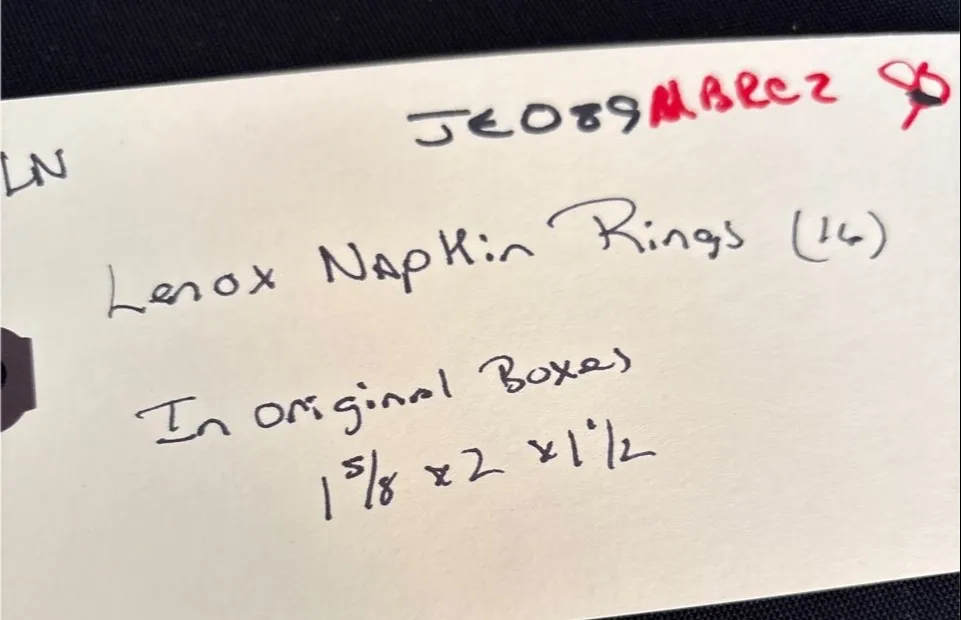 JE089MBRC2
LN
Lenox Napkin Rings (16)
In original Boxes
1 5/8 x 2 x 1 1/2